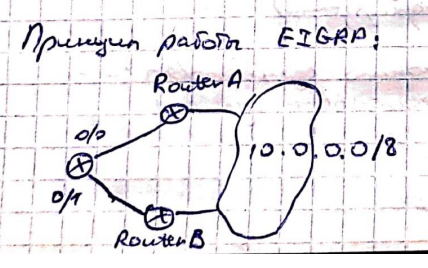 Принцип работы EIGRP:
Router A
0/0
10.0.0.0/8
0/1
Router B